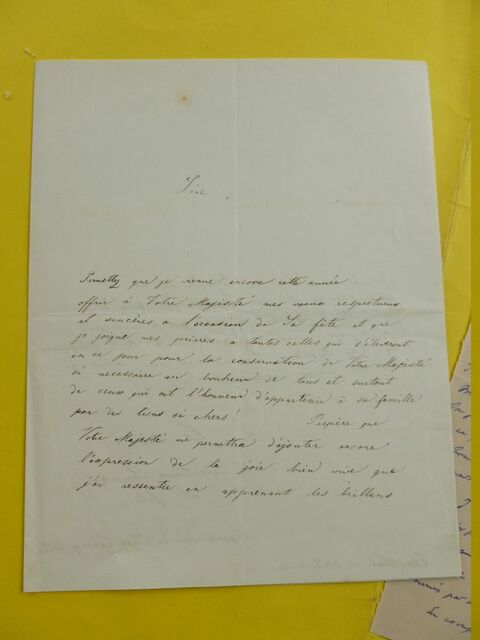 Sire,
Permettez que je vienne encore cette année
offrir à Votre Majesté mes vœux respectueux
et sincères à l'occasion de Sa fête et que
je joigne mes prières à toutes celles qui s'élèveront
en ce jour pour la conservation de Votre Majesté
si nécessaire au bonheur de tous et surtout
de ceux qui ont l'honneur d'appartenir à sa famille
par des liens si chers!
J'espère que
Votre Majesté me permettra d'ajouter encore
l'impression de la joie bien vive que
j'ai ressentie en apprenant les brillans